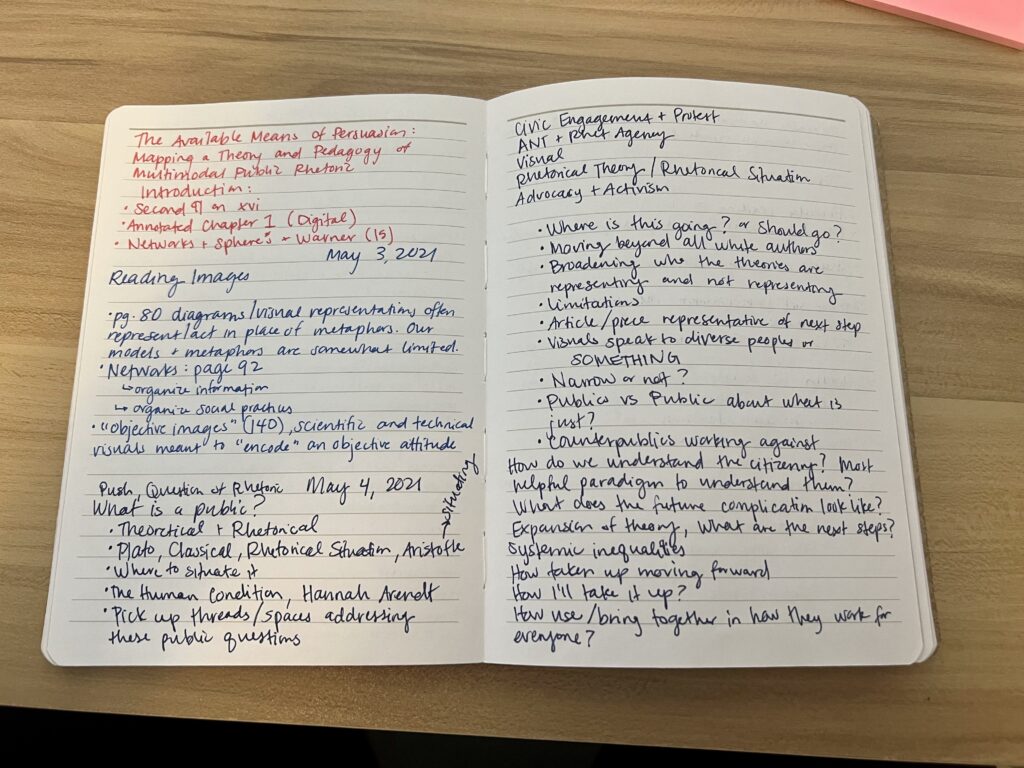 The Available Means of Persuasian:
Mapping a Theory and Pedagogy of
Multimodal Public Rhetoric
Introduction:
• Second ¶ on xvi
• Annotated Chapter 1 (Digital)
• Networks + Sphere's + Warner (15)
May 3, 2021
Reading Images
• pg. 80 diagrams/visual representations often
represent/act in place of metaphors. Our
models + metaphors are somewhat limited.
• Networks: page 92
↳ organize information
↳ organize social practices
• "objective images" (140), scientific and technical
visuals meant to "encode" an objective attitude
Push, Question of Rhetoric May 4, 2021
What is a public?
• Theoretical + Rhetorical
• Plato, Classical, Rhetorical Situation, Aristotle
→ situating
• Where to situate it
• The Human Condition, Hannah Arendt
• Pick up threads/spaces addressing
these public questions
Civic Engagement + Protest
ANT + Agency
Visual
Rhetorical Theory / Rhetorical Situation
Advocacy + Activism
• Where is this going? or Should go?
• Moving beyond all white authors
• Broadening who the theories are
representing and not representing
• Limitations
• Article/piece representative of next step
• Visuals speak to diverse peoples or
SOMETHING
• Narrow or not?
• Publics vs Public about what is
just?
• Counterpublics working against
How do we understand the citizenry? Most
helpful paradigm to understand them?
What does the future complication look like?
Expansion of theory, What are the next steps?
Systemic inequalities
How taken up moving forward
How I'll take it up?
How use/bring together in how they work for
everyone?